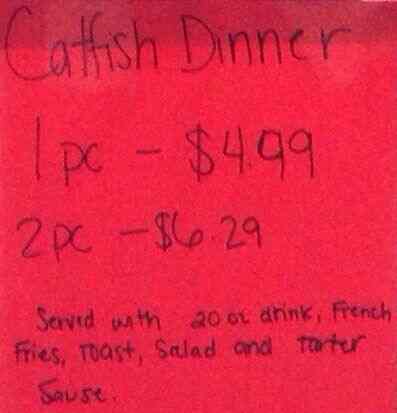 Catfish Dinner
1 pc - $4.99
2 pc - $6.29
Served with 20 oz drink, French
Fries, Toast, Salad and Tarter
Sause.